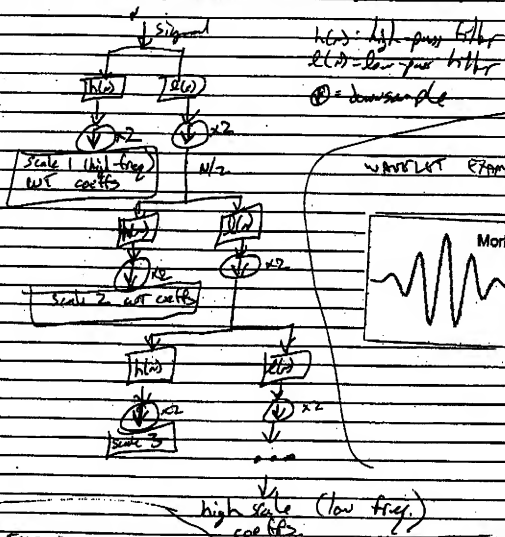 signal
h(n): high-pass filter
l(n) = low-pass filter
h(n) l(n)
↓ = downsample
↓ x2 ↓ x2
scale 1 (high-freq)
WT coeffs
N/2
WAVELET EXAM
h(n) l(n)
Morl
↓ x2 ↓ x2
scale 2 WT coeffs
h(n) l(n)
↓ x2 ↓ x2
scale 3
...
high scale (low freq.)
coeffs.